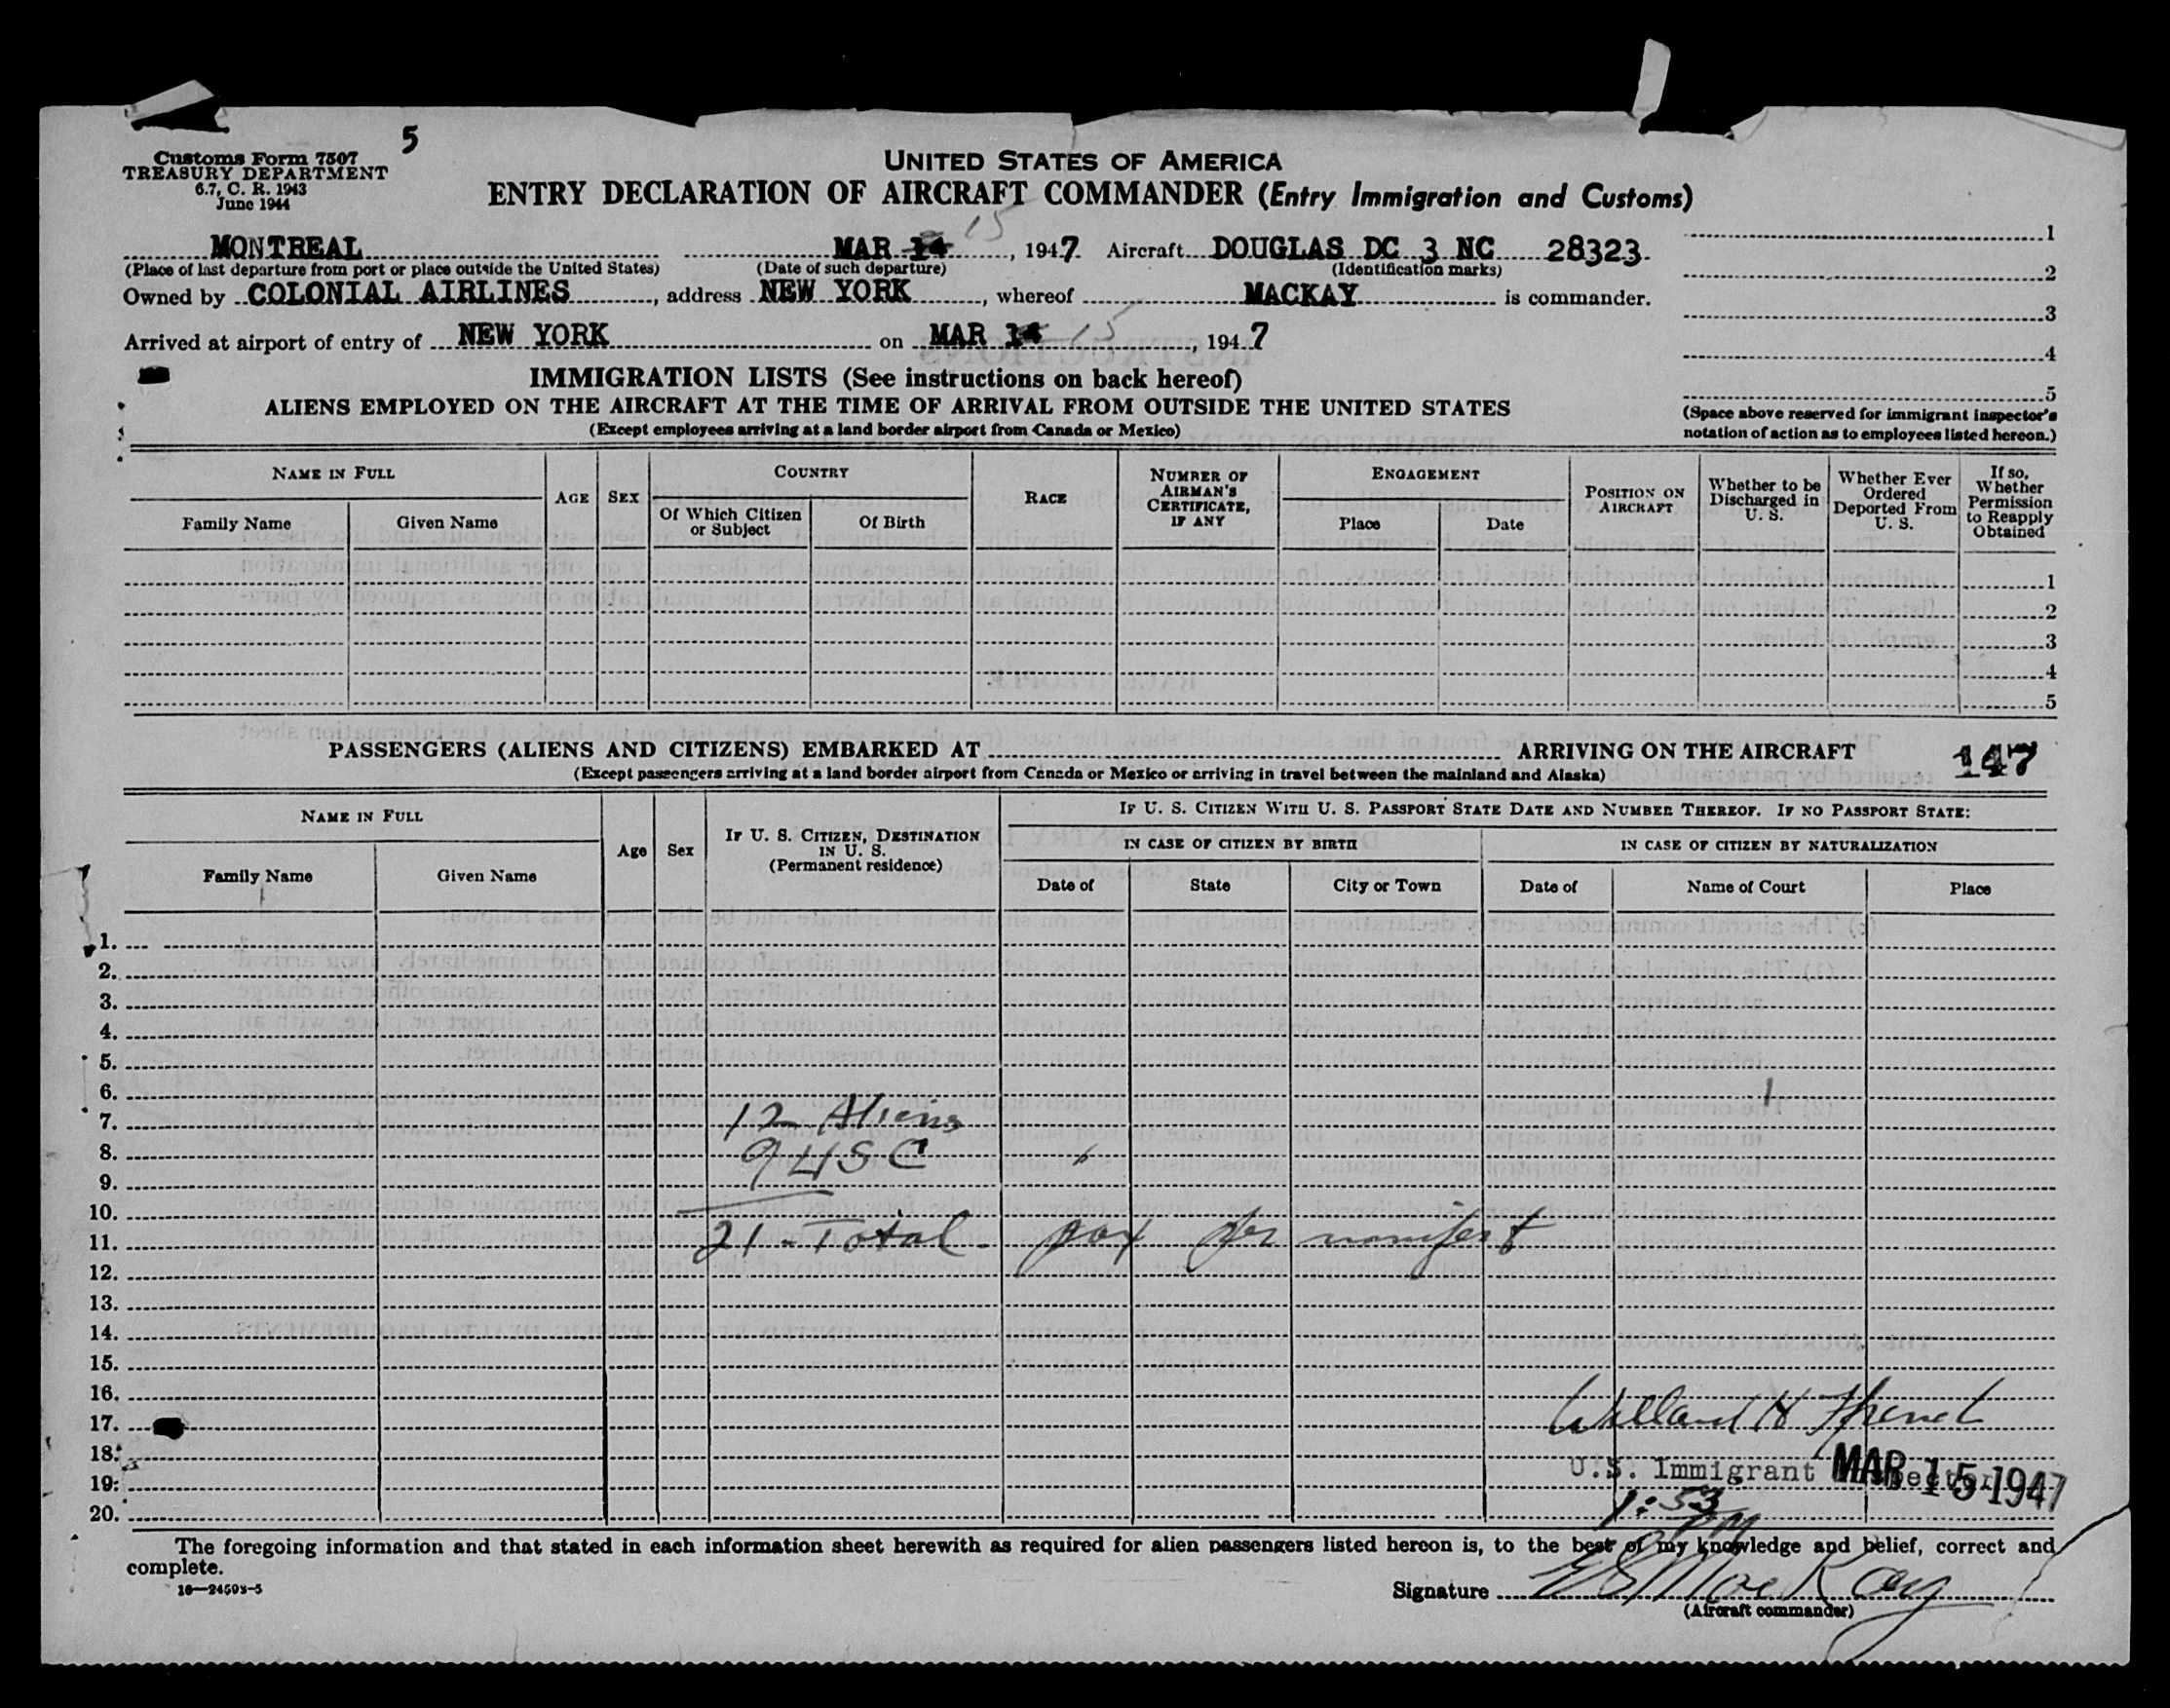 5
Customs Form 7507
TREASURY DEPARTMENT
6.7, C. R. 1943
June 1944
UNITED STATES OF AMERICA
ENTRY DECLARATION OF AIRCRAFT COMMANDER (Entry Immigration and Customs)
15
MONTREAL MAR 14, 1947 Aircraft DOUGLAS DC 3 NC 28323
(Place of last departure from port or place outside the United States) (Date of such departure) (Identification marks)
Owned by COLONIAL AIRLINES, address NEW YORK, whereof MACKAY is commander.
Arrived at airport of entry of NEW YORK on MAR 14 15, 1947
1
2
3
4
5
(Space above reserved for immigrant inspector's
notation of action as to employees listed hereon.)
IMMIGRATION LISTS (See instructions on back hereof)
ALIENS EMPLOYED ON THE AIRCRAFT AT THE TIME OF ARRIVAL FROM OUTSIDE THE UNITED STATES
(Except employees arriving at a land border airport from Canada or Mexico)
NAME IN FULL
Family Name
Given Name
AGE
SEX
COUNTRY
Of Which Citizen
or Subject
Of Birth
RACE
NUMBER OF
AIRMAN'S
CERTIFICATE,
IF ANY
ENGAGEMENT
Place
Date
POSITION ON
AIRCRAFT
Whether to be
Discharged in
U. S.
Whether Ever
Ordered
Deported From
U. S.
If so,
Whether
Permission
to Reapply
Obtained
1
2
3
4
5
PASSENGERS (ALIENS AND CITIZENS) EMBARKED AT ARRIVING ON THE AIRCRAFT 147
(Except passengers arriving at a land border airport from Canada or Mexico or arriving in travel between the mainland and Alaska)
NAME IN FULL
Family Name
Given Name
Age
Sex
IF U. S. CITIZEN, DESTINATION
IN U. S.
(Permanent residence)
IF U. S. CITIZEN WITH U. S. PASSPORT STATE DATE AND NUMBER THEREOF. IF NO PASSPORT STATE:
IN CASE OF CITIZEN BY BIRTH
Date of
State
City or Town
IN CASE OF CITIZEN BY NATURALIZATION
Date of
Name of Court
Place
1.
2.
3.
4.
5.
6.
7. 12 Aliens
8. 9 USC
9.
10.
11. 21 - Total pax per manifest
12.
13.
14.
15.
16.
17. Willard H
18.
19. U.S. Immigrant Inspector MAR 15 1947
20. 1:53 PM
The foregoing information and that stated in each information sheet herewith as required for alien passengers listed hereon is, to the best of my knowledge and belief, correct and
complete.
16—24503-5
Signature MacKay
(Aircraft commander)